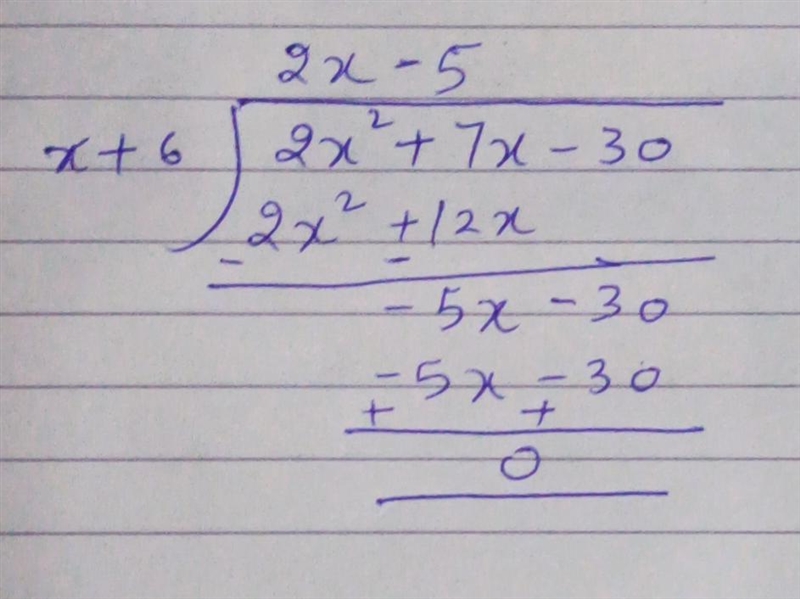 2x - 5
x + 6 2x² + 7x - 30
2x² + 12x
- -
-5x - 30
-5x - 30
+ +
0